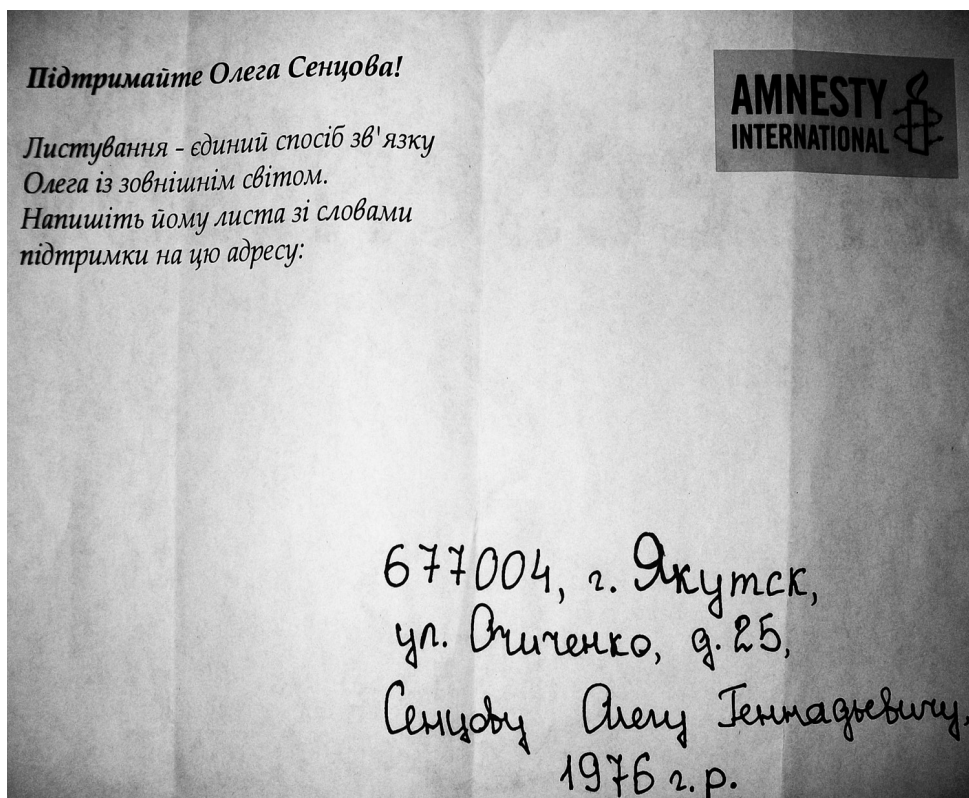 Підтримайте Олега Сенцова!
AMNESTY
INTERNATIONAL
Листування - єдиний спосіб зв'язку
Олега із зовнішнім світом.
Напишіть йому листа зі словами
підтримки на цю адресу:
677004, г. Якутск,
ул. Очиченко, д. 25,
Сенцову Олегу Геннадьевичу,
1976 г. р.